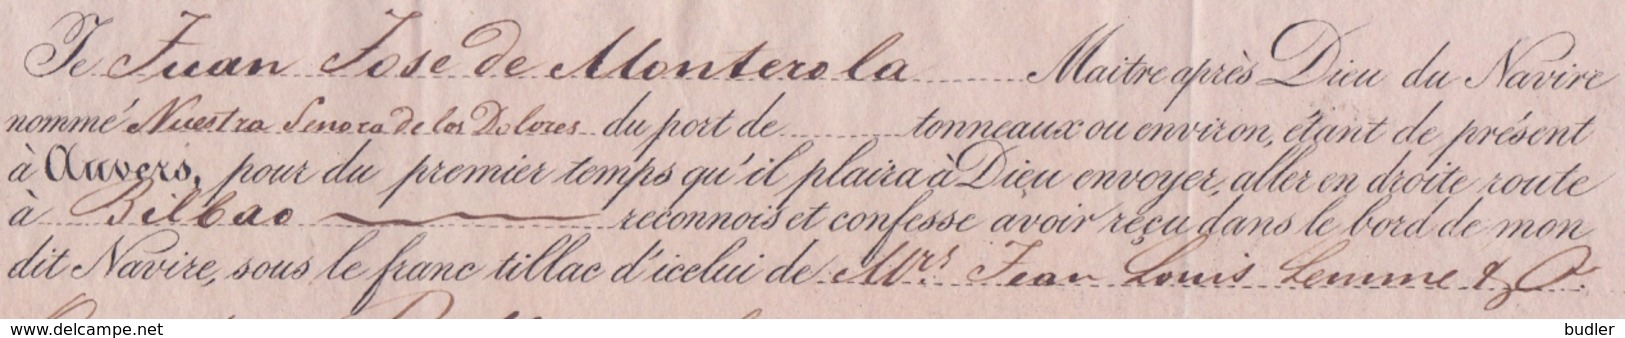 Je Juan Jose de Monterola Maitre après Dieu du Navire
nommé Nuestra Senora de los Dolores du port de tonneaux ou environ, étant de présent
à Anvers, pour du premier temps qu'il plaira à Dieu envoyer, aller en droite route
à Bilbao reconnois et confesse avoir reçu dans le bord de mon
dit Navire, sous le franc tillac d'icelui de Mrs Jean Louis Lemme & Co.
www.delcampe.net
budler